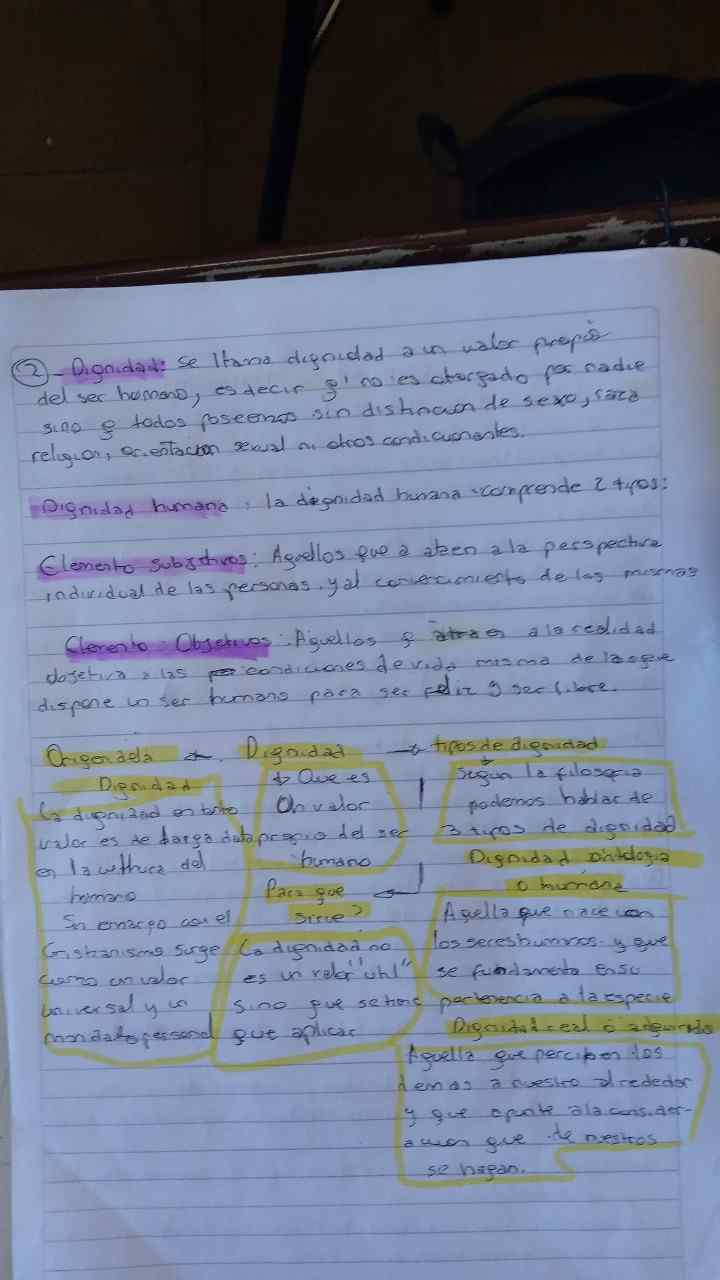 ② - Dignidad: se llama dignidad a un valor propio
del ser humano, es decir q' no es otorgado por nadie
sino q todos poseemos sin distincion de sexo, raza
religion, orientacion sexual ni otros condicionantes.
Dignidad humana: la dignidad humana comprende 2 tipos:
Elemento subjetivos: Aquellos que atean a la perspectiva
individual de las personas. y al convencimiento de las mismas
Elemento Objetivos: Aquellos q a la realidad
objetiva a las condiciones de vida misma de las que
dispone un ser humano para ser feliz y ser libre.
Origen de la ← Dignidad → tipos de dignidad
Dignidad
La dignidad en tanto
valor es de larga data
en la cultura del
humano
Sin emargo con el
Cristianismo surge
como un valor
universal y un
mandato personal
↓ Que es
Un valor
propio del ser
humano
Para que
sirve?
La dignidad no
es un valor "util"
sino que se tiene
que aplicar
Según la filosofia
podemos hablar de
3 tipos de dignidad
Dignidad ontologia
o humana
Aquella que nace con
los seres humanos y que
se fundamenta en su
pertenencia a la especie
Dignidad real o adquirida
Aquella que perciben los
demas a nuestro alrededor
y que apunte a la consider-
acion que de nuestros
se hagan.